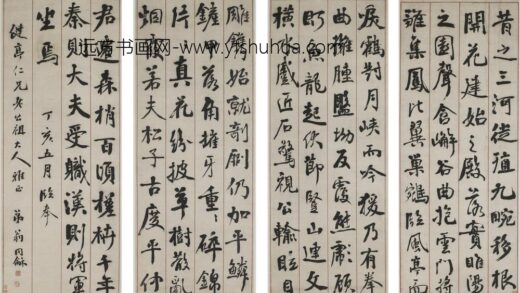 昔之三河徙植九畹移根
開花建始之殿落實睢陽
之園聲含嶰谷曲抱雲門將
雛集鳳比翼巢鴛臨風亭而
唳鶴對月峽而吟猨乃有拳
曲擁腫盤坳反覆熊彪顧
盼魚龍起伏節豎山連文
橫水蹙匠石驚視公輸眩目
雕鐫始就剞劂仍加平鱗
鏟甲落角摧牙重重碎錦
片片真花紛披草樹散亂
烟霞若夫松子古度平仲
君遷森梢百頃槎枿千年
秦則大夫受職漢則將軍
坐焉
丁亥五月臨奉
亭仁兄老公祖大人雅正
弟翁同龢
书画网-www.yishuhua.com